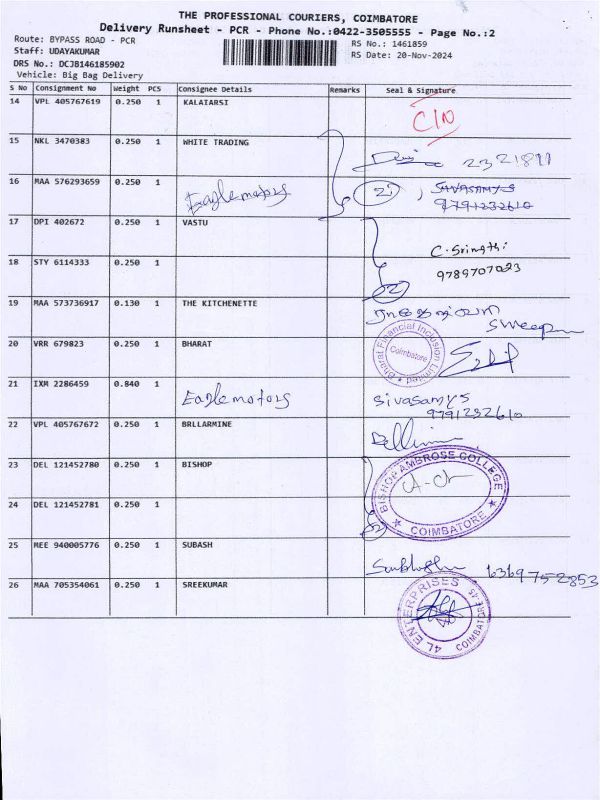 THE PROFESSIONAL COURIERS, COIMBATORE
Delivery Runsheet - PCR - Phone No.:0422-3505555 - Page No.:2
Route: BYPASS ROAD - PCR
RS No.: 1461859
Staff: UDAYAKUMAR
RS Date: 20-Nov-2024
DRS No.: DCJB146185902
Vehicle: Big Bag Delivery
S No Consignment No Weight PCS Consignee Details Remarks Seal & Signature
14 VPL 405767619 0.250 1 KALAIARSI
C/N
15 NKL 3470383 0.250 1 WHITE TRADING
2321811
16 MAA 576293659 0.250 1 Eaglemotors
2
SIVASAMYS
9791232610
17 DPI 402672 0.250 1 VASTU
C. Srimathi
18 STY 6114333 0.250 1
9789707023
2
19 MAA 573736917 0.130 1 THE KITCHENETTE
Sweeper
20 VRR 679823 0.250 1 BHARAT
Bharat Financial Inclusion Limited
Coimbatore
21 IXM 2286459 0.840 1 Eaglemotors
Sivasamys
9791232610
22 VPL 405767672 0.250 1 BRLLARMINE
23 DEL 121452780 0.250 1 BISHOP
BISHOP AMBROSE COLLEGE
COIMBATORE
24 DEL 121452781 0.250 1
25 MEE 940005776 0.250 1 SUBASH
6369752853
26 MAA 705354061 0.250 1 SREEKUMAR
4L ENTERPRISES
COIMBATORE-45